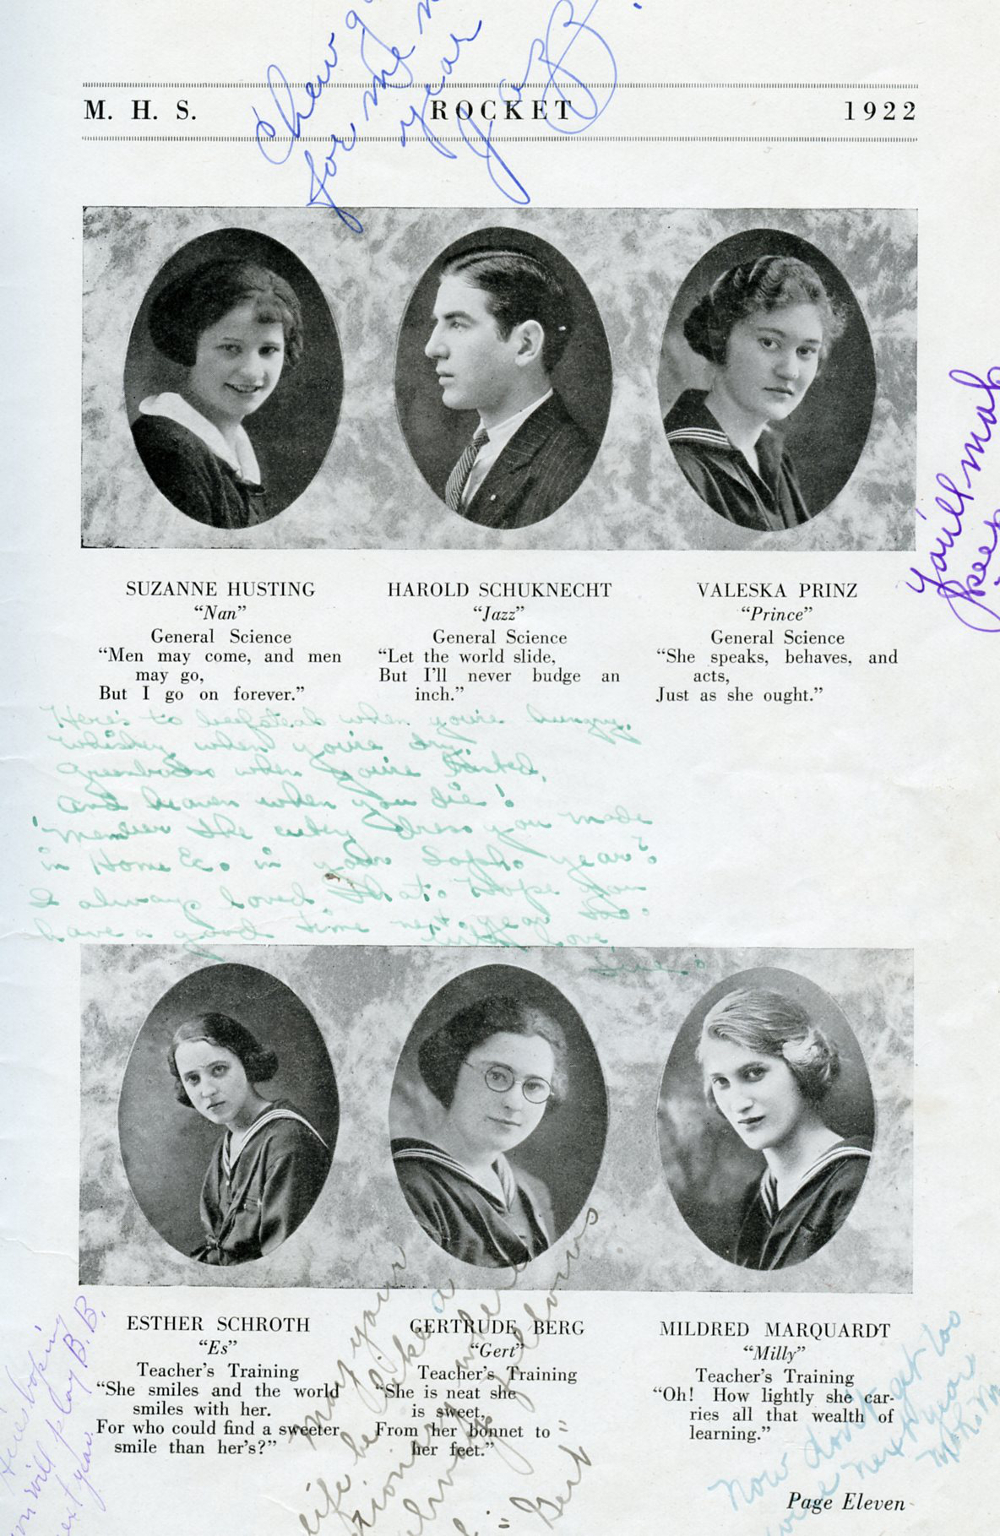 Chew
for me
year
M. H. S. ROCKET 1922
you'll
keep
SUZANNE HUSTING
"Nan"
General Science
"Men may come, and men
may go,
But I go on forever."
HAROLD SCHUKNECHT
"Jazz"
General Science
"Let the world slide,
But I'll never budge an
inch."
VALESKA PRINZ
"Prince"
General Science
"She speaks, behaves, and
acts,
Just as she ought."
Here's to beefsteak when you're hungry,
Whiskey when you're dry,
Greenbacks when you're busted,
and heaven when you die!
'Member the cutey dress you made
in Home Ec. in your Soph. year?
I always loved that. Hope you
have a good time next year too.
with love
Sue.
ESTHER SCHROTH
"Es"
Teacher's Training
"She smiles and the world
smiles with her.
For who could find a sweeter
smile than her's?"
GERTRUDE BERG
"Gert"
Teacher's Training
"She is neat she
is sweet,
From her bonnet to
her feet."
MILDRED MARQUARDT
"Milly"
Teacher's Training
"Oh! How lightly she car-
ries all that wealth of
learning."
will play B. B.
next year.
may your
life be like a
where
follows
"Gert"
Now don't get too
next year
Page Eleven